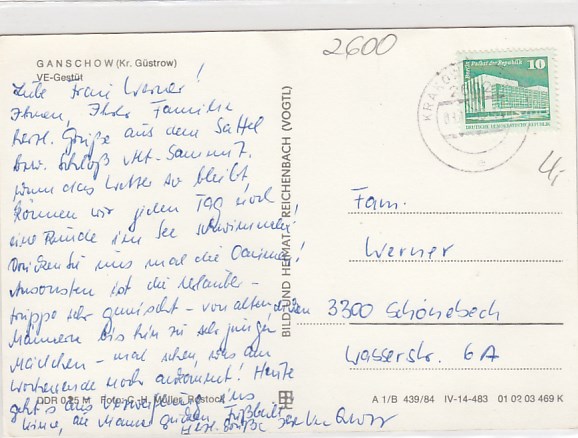 2600
GANSCHOW (Kr. Güstrow)
VE-Gestüt
Liebe Frau Werner!
Ihnen, Ihrer Familie
herzl. Grüße aus dem Sattel
bzw. Schloß
wenn das Wetter so bleibt,
können wir jeden Tag noch
eine Runde im See schwimmen!
Drücken Sie uns mal die Daumen!
Ansonsten ist die Urlauber-
truppe sehr gemischt - von alten dicken
Männern bis hin zu sehr jungen
Mädchen - mal sehen, was am
Wochenende noch ankommt! Heute
geht's aus Verzweiflung ins
Kino, die Männer gucken Fußball
Herzl. Grüße
BILD UND HEIMAT REICHENBACH (VOGTL)
KRAKOW
Berlin, Palast der Republik
10
DEUTSCHE DEMOKRATISCHE REPUBLIK
Fam.
Werner
3300 Schönebeck
Wasserstr. 6A
DDR 0,25 M Foto: C. H. Müller, Rostock
A 1/B 439/84 IV-14-483 01 02 03 469 K